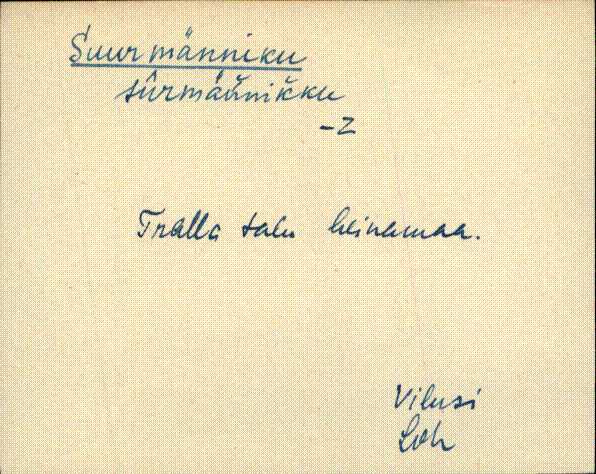 Suurmänniku
sûrmäňnĭkku
-z
Tralla talu heinamaa.
Vilusi
Loh